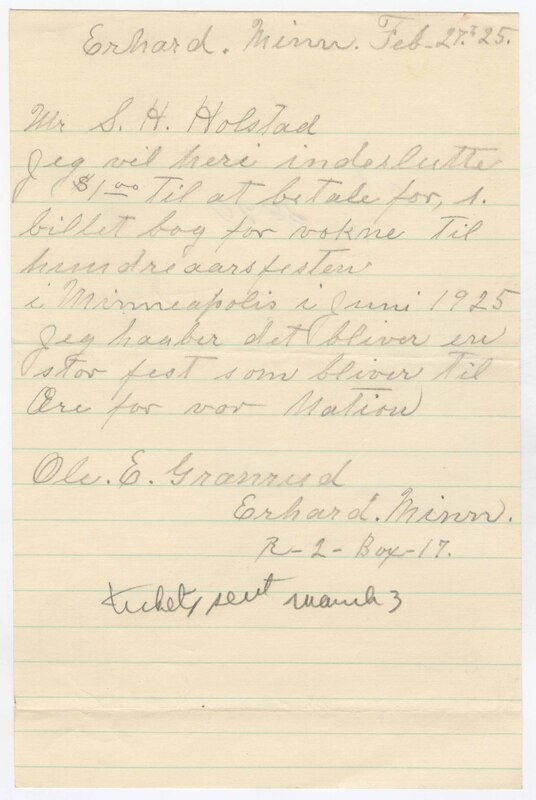 Erhard. Minn. Feb-27. 25.
Mr S. H. Holstad
Jeg vil heri indeslutte
$1.00 Til at betale for, 1.
billet bog for vokne Til
hundreaarsfesten
i Minneapolis i Juni 1925
Jeg haaber det bliver en
stor fest som bliver til
Ære for vor Nation
Ole. E. Granrud
Erhard. Minn.
R-2-Box-17.
tickets sent march 3